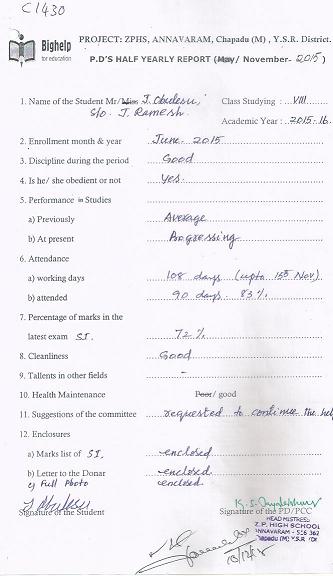 C1430
Bighelp
for education
PROJECT: ZPHS, ANNAVARAM, Chapadu (M), Y.S.R. District.
P.D'S HALF YEARLY REPORT (May/ November- 2015)
1. Name of the Student Mr/Miss J. Obulesu, Class Studying : VIII
S/o. J. Ramesh. Academic Year : 2015-16.
2. Enrollment month & year June- 2015
3. Discipline during the period Good
4. Is he/ she obedient or not yes.
5. Performance in Studies
a) Previously Average
b) At present Progressing
6. Attendance
a) working days 108 days (upto 15th Nov)
b) attended 90 days- 83%.
7. Percentage of marks in the
latest exam S.I. 72%
8. Cleanliness Good
9. Tallents in other fields -
10. Health Maintenance Poor/ good
11. Suggestions of the committee requested to continue the help
12. Enclosures
a) Marks list of S.I. enclosed
b) Letter to the Donar enclosed
c) Full Photo enclosed
Signature of the Student Signature of the PD/PCC
HEAD MISTRESS
Z.P. HIGH SCHOOL
ANNAVARAM - 516 362
Chapadu (M) Y.S.R. (Dt)